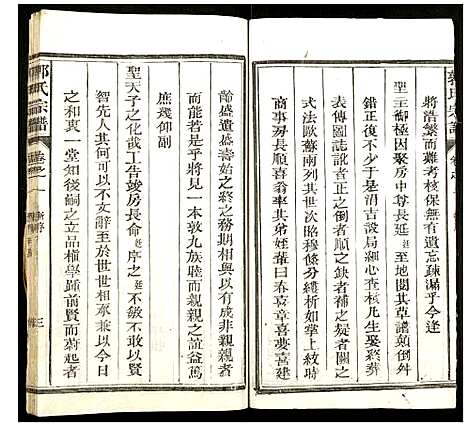 將浩繁而難考核保無有遺忘疎漏乎今逢
聖主御極因聚房中尊長延至地閱其草譜顛倒舛
錯正復不少于是涓吉設局細心查核凡生娶卒葬
表傳圖誌訛者正之倒者順之缺者補之疑者闕之
式法歐蘇南列其世次略穆條分縷析如掌上紋時
商事房長順喜弟兄姪輩曰春喜章喜慶喜建
齡盛遺盛壽始之終之務期相與以有成非親親者
而能若是乎將見一本敦九族睦而親親之誼益篤
庶幾仰副
聖天子之化哉工告竣房長命延序之延不敏不敢以賢
智先人其何可以不文辭至於世世相承兼以今日
之和衷一堂知後嗣之立品植學踵前賢而蔚起者
郭氏宗譜
卷之一
三
郭氏宗譜